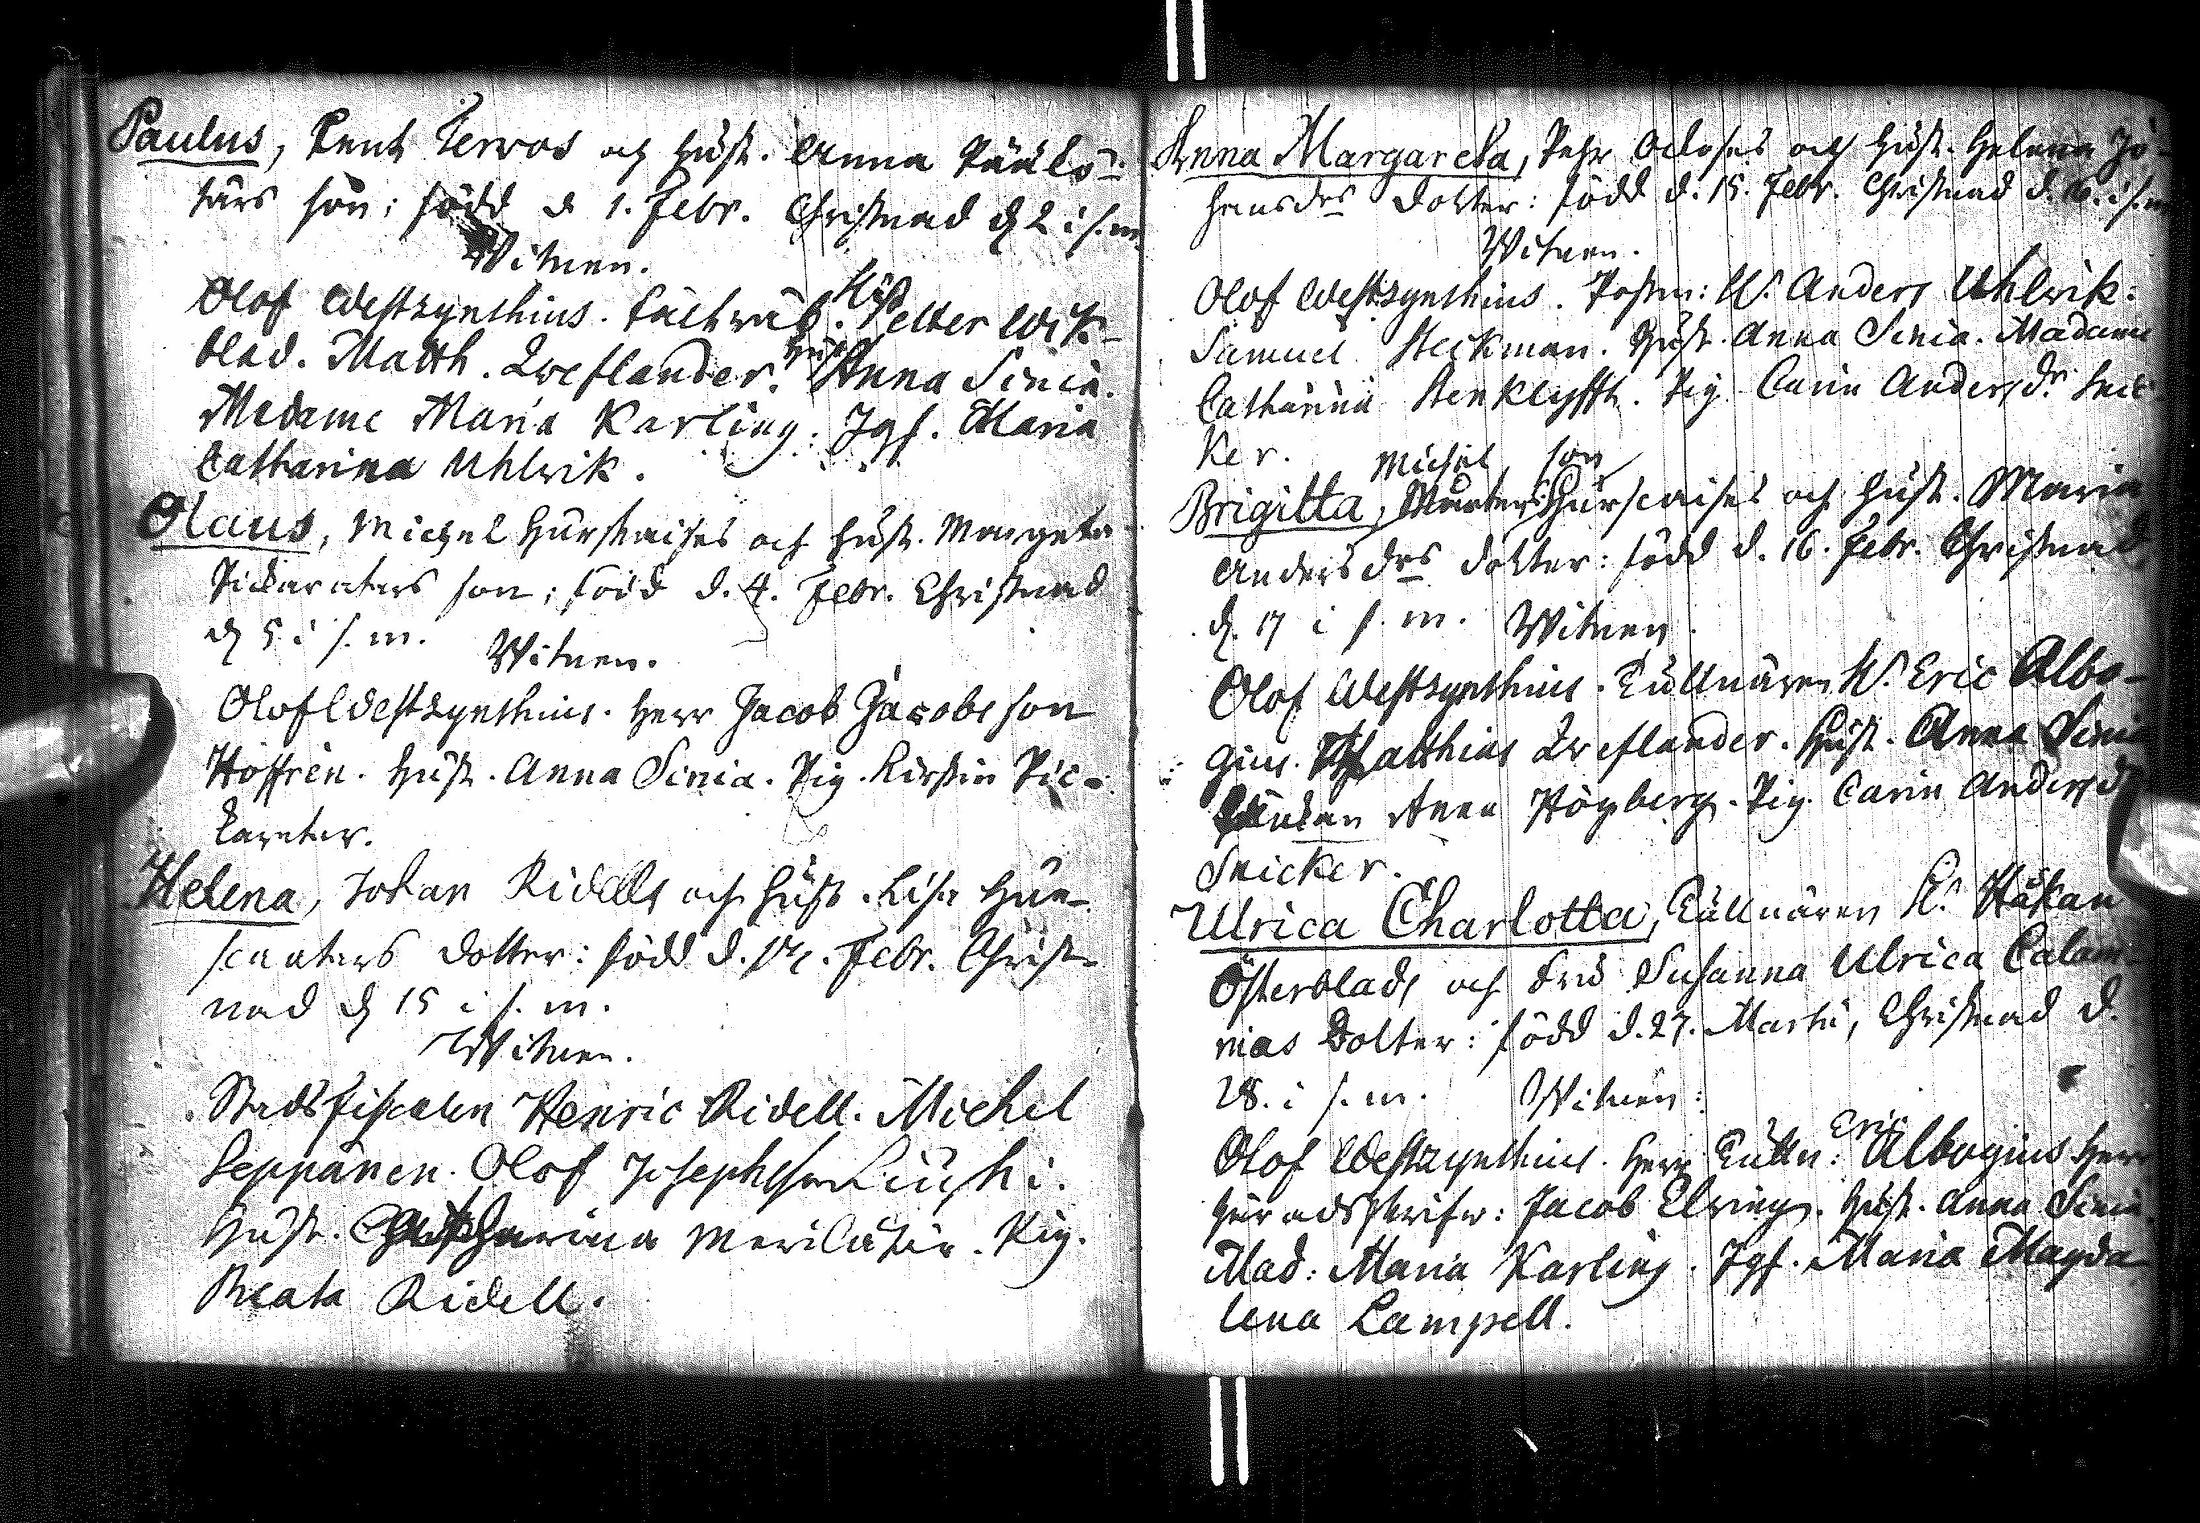 Paulus, Bent Terwos och hust. Anna Pääkö-
tärs son; född d. 1. Febr. Christnad d. 2 i s.m.
Witnen.
Olof Westzynthius. Petter Wik-
blad. Matth. Zweflander. Hust. Anna Sinia.
Madame Maria Karling. Jgf. Maria
Catharina Uhlwik.
Olaus, Michel Hurskaises och hust. Margeta
Pickaratars son; född d. 4. Febr. Christnad
d. 5 i s.m. Witnen.
Olof Westzynthius. Herr Jacob Jacobsson
Höffrèn. Hust. Anna Sinia. Pig. Kirstin Pic-
karatar.
Helena, Johan Ridells och hust. Lisa Hur-
skatars dotter: född d. 14. Febr. Christ-
nad d. 15 i s.m.
Witnen.
Stadsfiscalen Henric Ridell. Michel
Seppänen. Olof Josephsson
Hust. Catharina Merilätär. Pig.
Beata Ridell.
Anna Margareta, Pehr och hust. Helena Jo-
hansdrs dotter: född d. 15. Febr. Christnad d. 16. i s.m.
Witnen.
Olof Westzynthius. Anders Uhlwik:
Samuel Steckman. Hust. Anna Sinia. Madame
Catharina Stenklyfft. Pig. Carin Andersdr. Snic-
ker.
Michel son
Brigitta, Hurscaises och hust. Maria
Andersdrs dotter: född d. 16. Febr. Christnad
d. 17 i s.m. Witnen.
Olof Westzynthius. Cullnären H. Eric Albo-
gius. Matthias Zweflander. Hust. Anna Sinia
Enkan Anna Högberg. Pig. Carin Andersd
Snicker.
Ulrica Charlotta, Tullnären H. Håkan
Österblads och Fru Susanna Ulrica Calam-
nias Dotter: född d. 27. Martii, Christnad d.
28. i s.m. Witnen:
Eric
Olof Westzynthius. Herr Tulln: Albogius Herr
Häradsskrifw: Jacob Elving. Hust. Anna Sinia.
Mad: Maria Karling. Jgf. Maria Magda
lena Lampell.